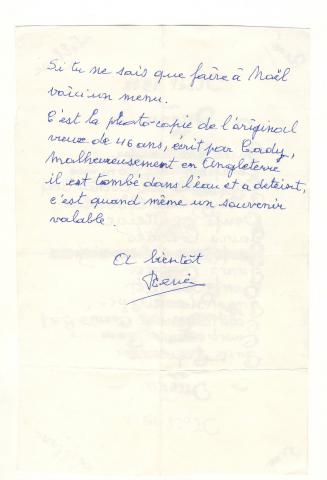 Si tu ne sais que faire à Noël
voici un menu.
C'est la photo-copie de l'original
vieux de 46 ans, écrit par Cady,
Malheureusement en Angleterre
il est tombé dans l'eau et a déteint,
c'est quand même un souvenir
valable.
A bientôt